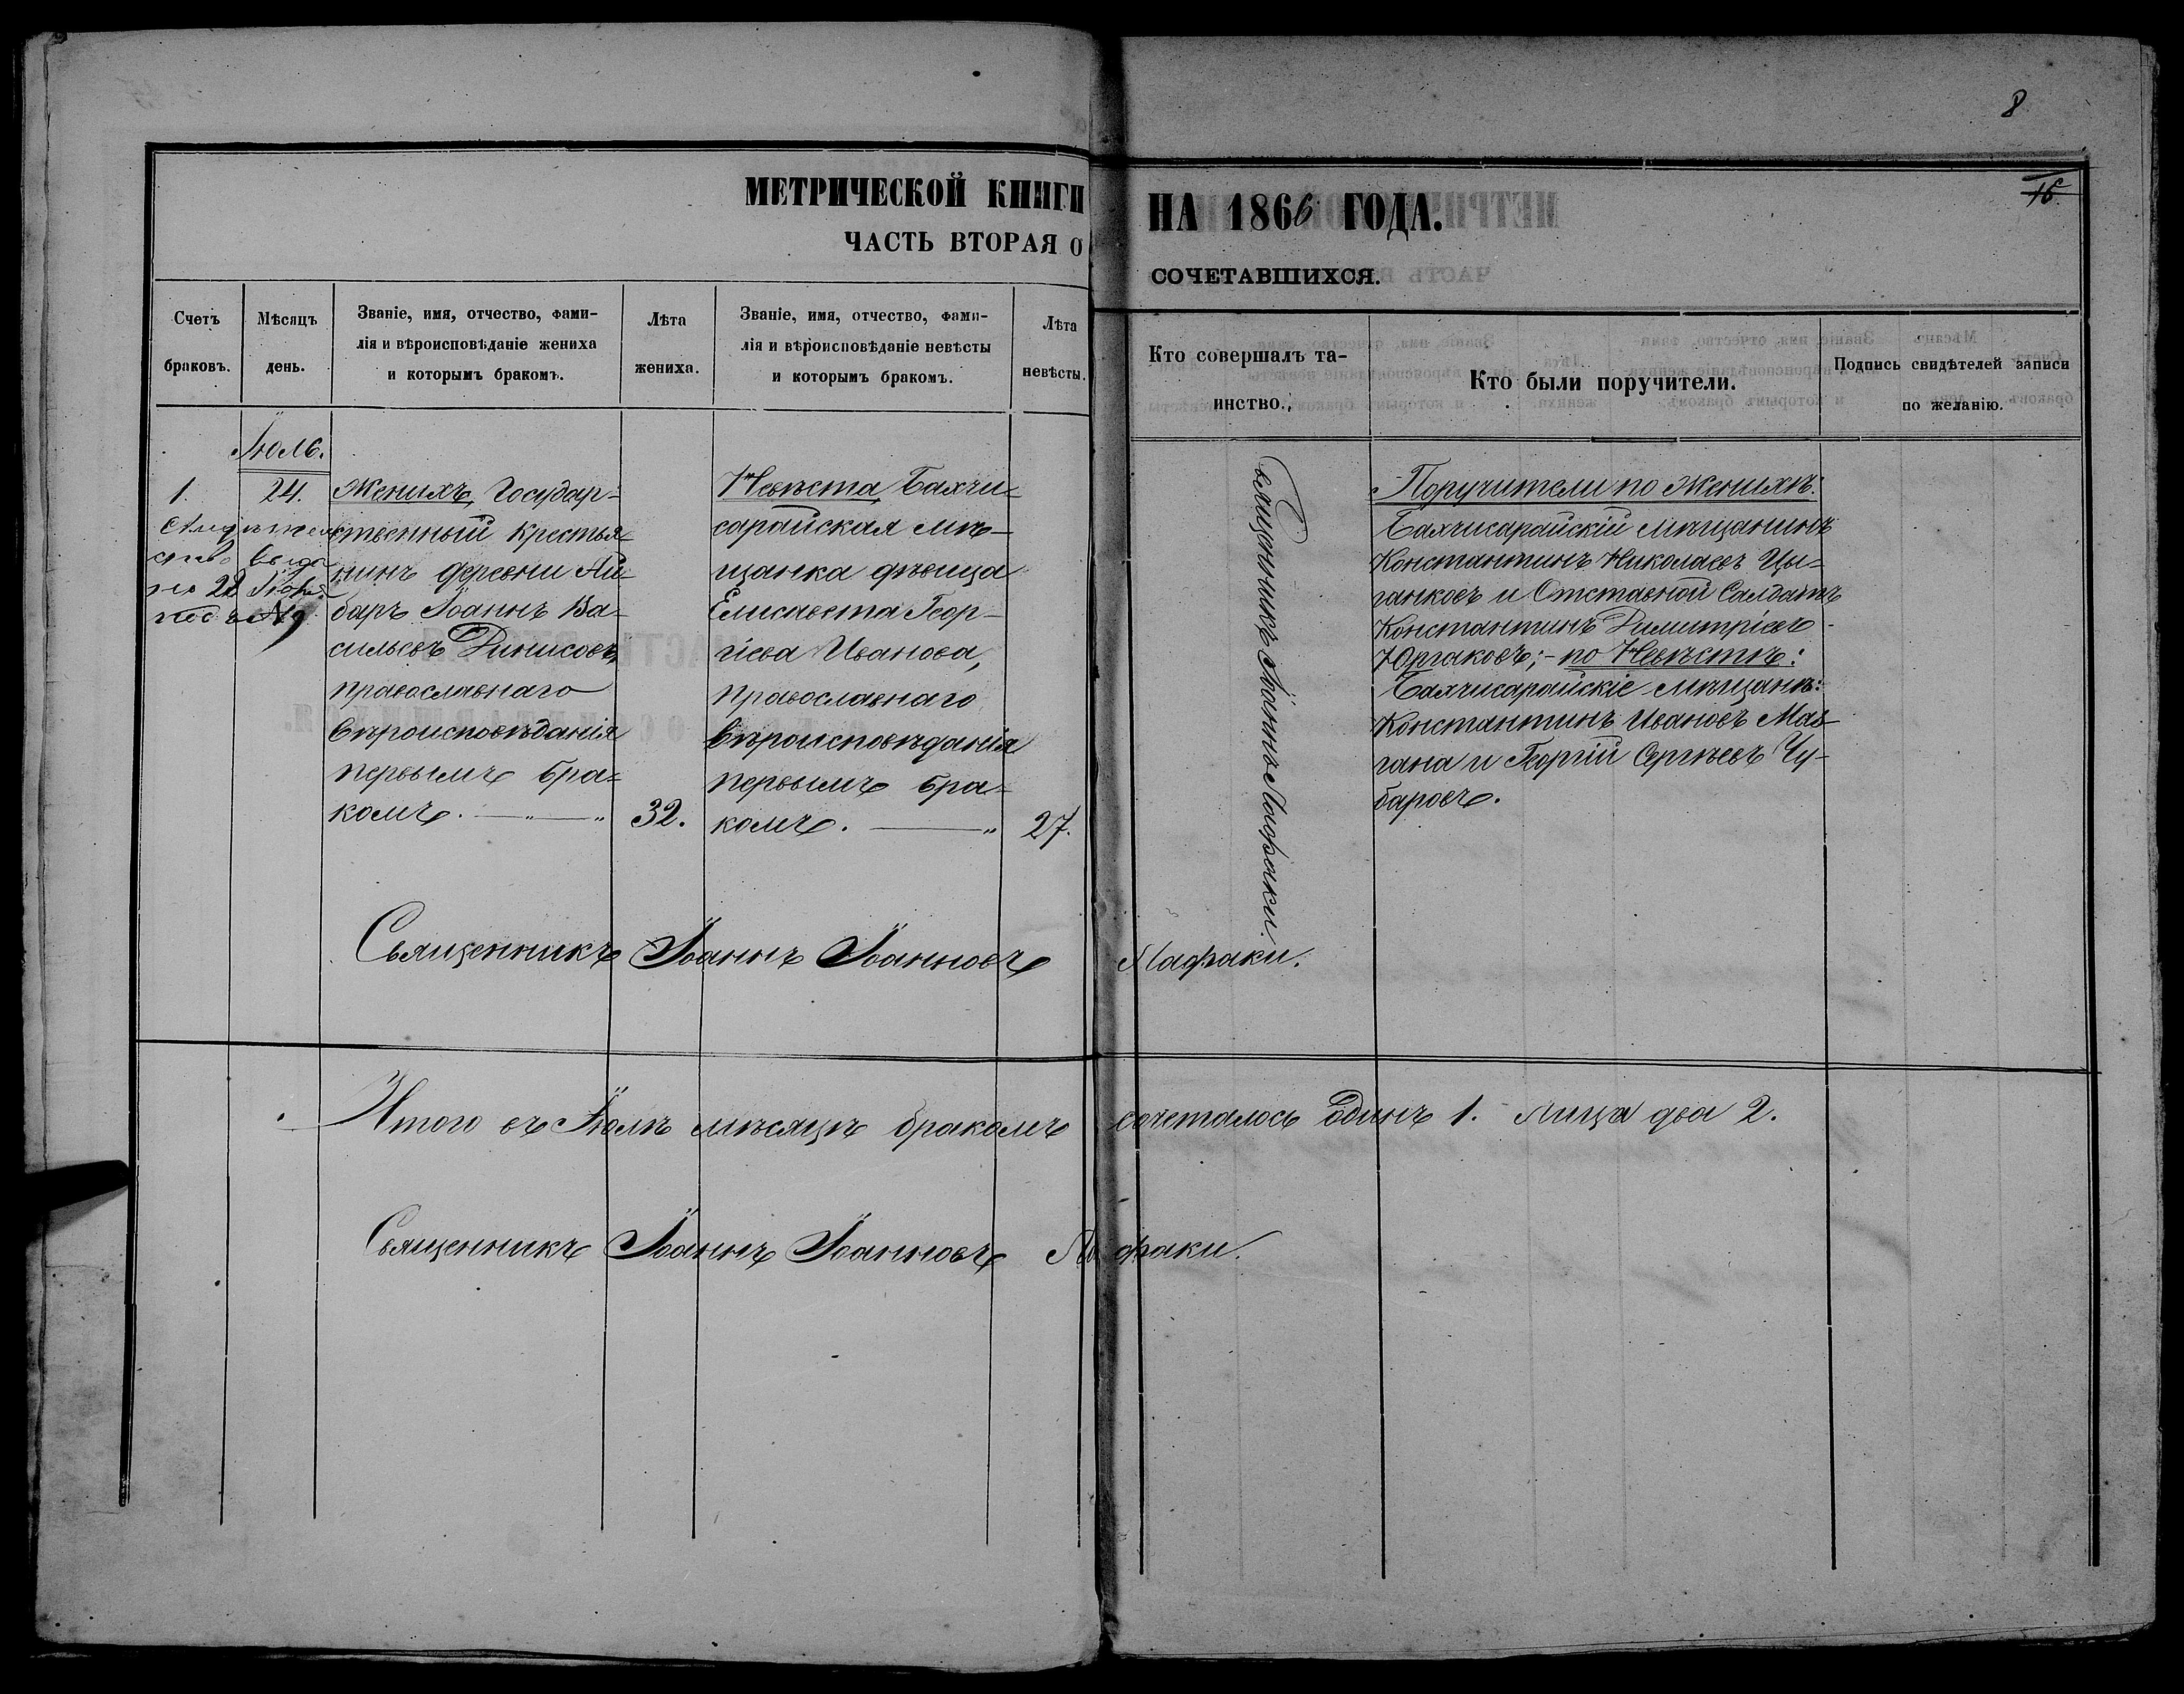 8
16
МЕТРИЧЕСКОЙ КНИГИ НА 1866 ГОДА.
ЧАСТЬ ВТОРАЯ О СОЧЕТАВШИХСЯ.
Счетъ браковъ.
Мѣсяцъ день.
Званіе, имя, отчество, фами-
лія и вѣроисповѣданіе жениха
и которымъ бракомъ.
Лѣта жениха.
Званіе, имя, отчество, фами-
лія и вѣроисповѣданіе невѣсты
и которымъ бракомъ.
Лѣта невѣсты.
Кто совершалъ та-
инство.
Кто были поручители.
Подпись свидѣтелей записи
по желанію.
Іюль.
1.
24.
выда
но 22
подъ № 9
Женихъ, Государ-
ственный крестья-
нинъ деревни Ай-
баръ Іоаннъ Ва-
сильевъ Динисовъ,
православнаго
вѣроисповѣданія
первымъ бра-
комъ.
32.
Невѣста Бахчи-
сарайская мѣ-
щанка дѣвица
Елисавета Геор-
гіева Иванова,
православнаго
вѣроисповѣданія
первымъ бра-
комъ.
27.
Священникъ Іоаннъ Лафаки.
Поручители по Женихѣ:
Бахчисарайскій мѣщанинъ
Константинъ Николаевъ Цы-
ганковъ и Отставной Салдатъ
Константинъ Димитріевъ
Юргаковъ; - по Невѣстѣ:
Бахчисарайскіе мѣщане:
Константинъ Ивановъ Маз-
гана и Георгій Сергѣевъ Чу-
баровъ.
Священникъ Іоаннъ Іоанновъ Лафаки.
Итого въ Іюлѣ мѣсяцѣ бракомъ сочеталось одинъ 1. лица два 2.
Священникъ Іоаннъ Іоанновъ Лафаки.